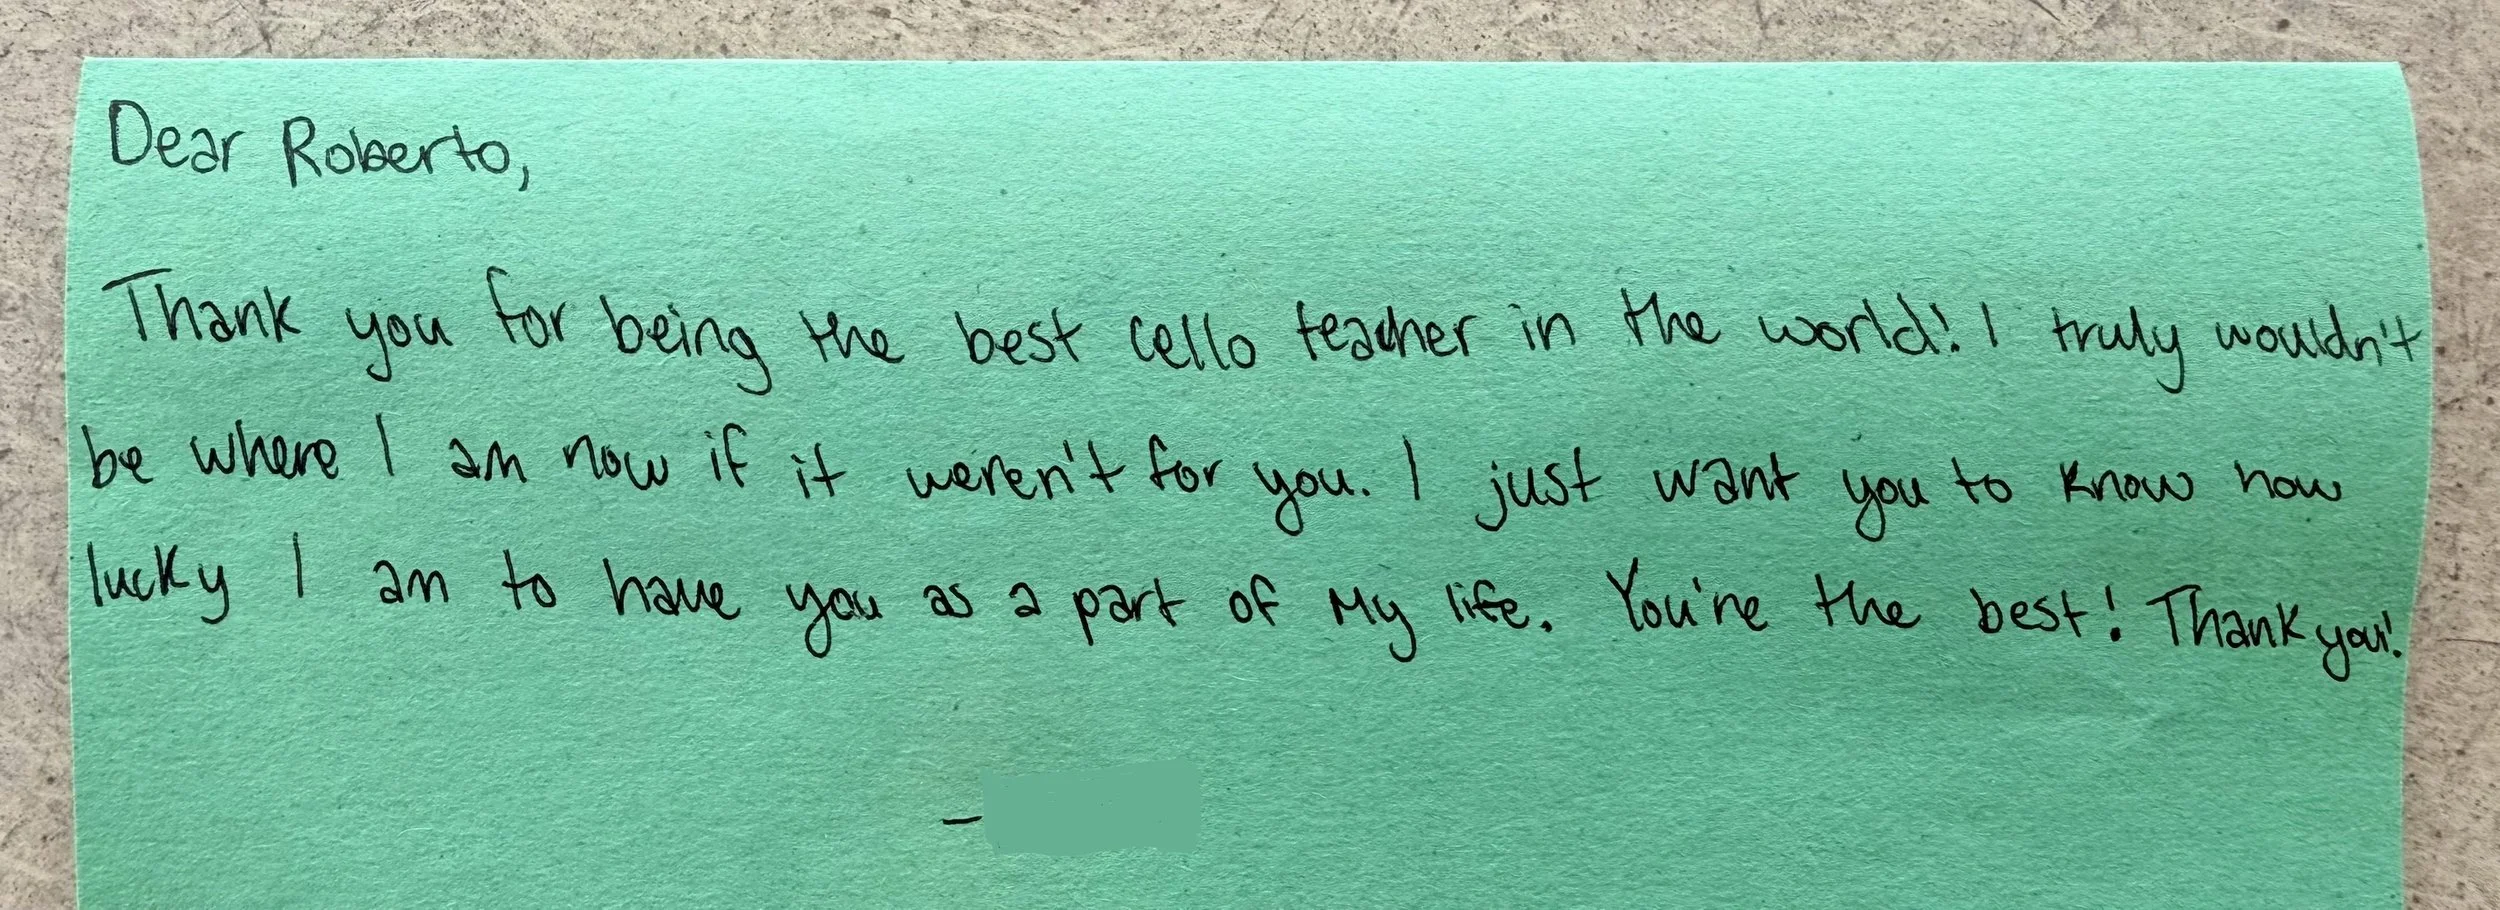 Dear Roberto,
Thank you for being the best cello teacher in the world! I truly wouldn't
be where I am now if it weren't for you. I just want you to know how
lucky I am to have you as a part of my life. You're the best! Thank you!
-